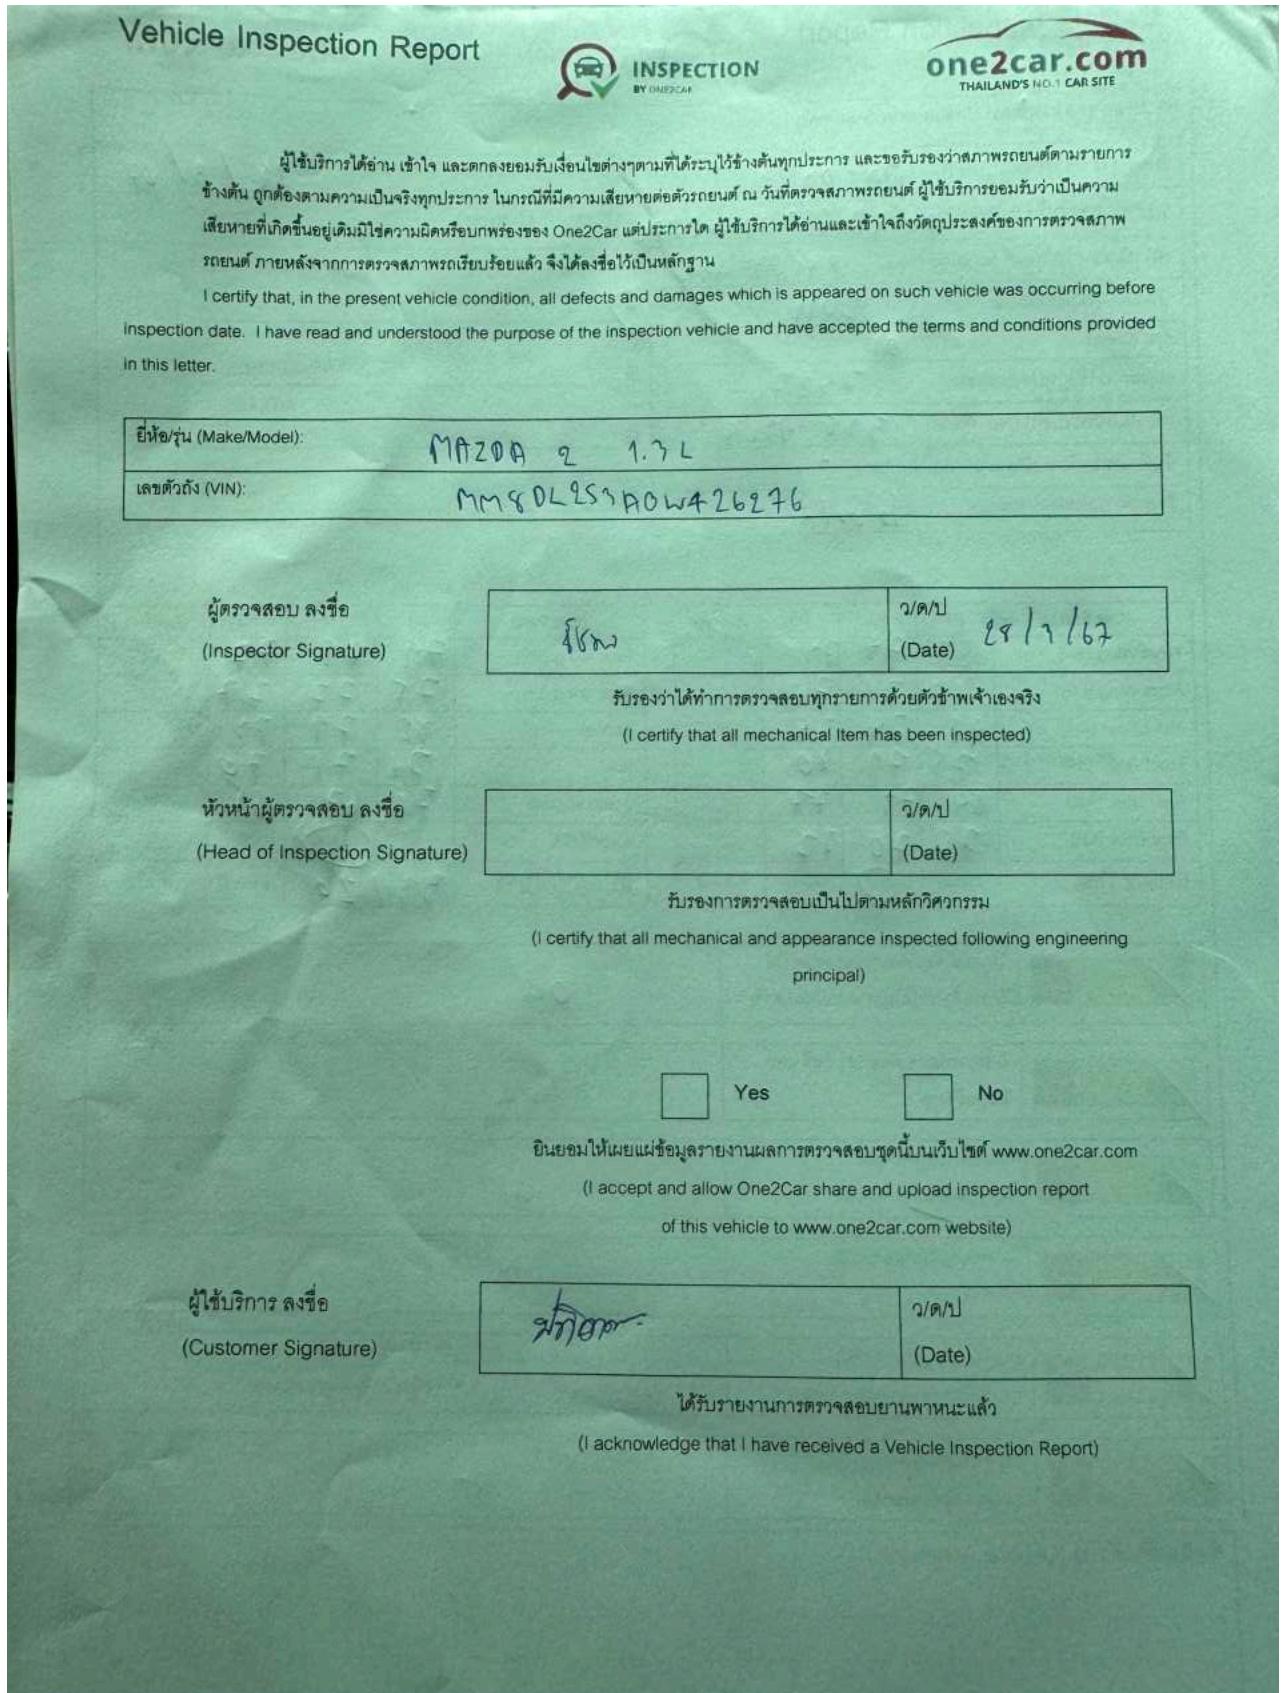 Vehicle Inspection Report
INSPECTION
BY ONE2CAR
one2car.com
THAILAND'S NO.1 CAR SITE
ผู้ใช้บริการได้อ่าน เข้าใจ และตกลงยอมรับเงื่อนไขต่างๆตามที่ได้ระบุไว้ข้างต้นทุกประการ และขอรับรองว่าสภาพรถยนต์ตามรายการ
ข้างต้น ถูกต้องตามความเป็นจริงทุกประการ ในกรณีที่มีความเสียหายต่อตัวรถยนต์ ณ วันที่ตรวจสภาพรถยนต์ ผู้ใช้บริการยอมรับว่าเป็นความ
เสียหายที่เกิดขึ้นอยู่เดิมมิใช่ความผิดหรือบกพร่องของ One2Car แต่ประการใด ผู้ใช้บริการได้อ่านและเข้าใจถึงวัตถุประสงค์ของการตรวจสภาพ
รถยนต์ ภายหลังจากการตรวจสภาพรถเรียบร้อยแล้ว จึงได้ลงชื่อไว้เป็นหลักฐาน
I certify that, in the present vehicle condition, all defects and damages which is appeared on such vehicle was occurring before
inspection date. I have read and understood the purpose of the inspection vehicle and have accepted the terms and conditions provided
in this letter.
ยี่ห้อ/รุ่น (Make/Model): MAZDA 2 1.3 L
เลขตัวถัง (VIN): MM8DL2S3A0W426276
ผู้ตรวจสอบ ลงชื่อ
(Inspector Signature)
ว/ด/ป
(Date) 28/3/67
รับรองว่าได้ทำการตรวจสอบทุกรายการด้วยตัวข้าพเจ้าเองจริง
(I certify that all mechanical Item has been inspected)
หัวหน้าผู้ตรวจสอบ ลงชื่อ
(Head of Inspection Signature)
ว/ด/ป
(Date)
รับรองการตรวจสอบเป็นไปตามหลักวิศวกรรม
(I certify that all mechanical and appearance inspected following engineering
principal)
Yes No
ยินยอมให้เผยแผ่ข้อมูลรายงานผลการตรวจสอบชุดนี้บนเว็บไซต์ www.one2car.com
(I accept and allow One2Car share and upload inspection report
of this vehicle to www.one2car.com website)
ผู้ใช้บริการ ลงชื่อ
(Customer Signature)
ว/ด/ป
(Date)
ได้รับรายงานการตรวจสอบยานพาหนะแล้ว
(I acknowledge that I have received a Vehicle Inspection Report)